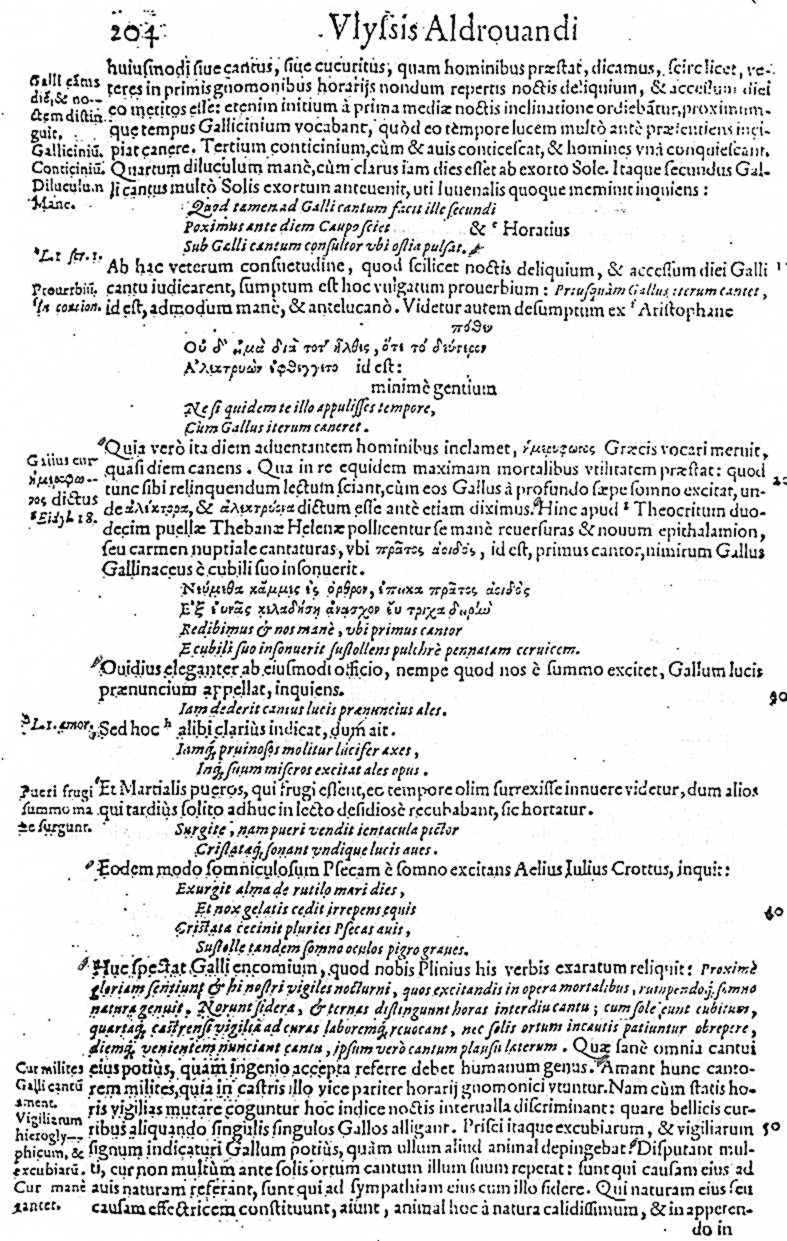 204
Vlyſsis Aldrouandi
huiuſmodi ſiue cantus, ſiue cucuritus, quam hominibus præſtat, dicamus, ſcire licet, ve-
teres in primis gnomonibus horarijs nondum repertis noctis deliquium, & acceſſum diei
eo metitos eſſe: etenim initium à prima mediæ noctis inclinatione ordiebātur, proximum-
que tempus Gallicinium vocabant, quòd eo tempore lucem multò antè præſentiens inci-
piat canere. Tertium conticinium, cùm & aues conticeſcāt, & homines vnà conquieſcant.
Quartum diluculum manè, cùm clarus iam dies eſſet ab exorto Sole. Itaque ſecundus Gal-
li cantus multò Solis exortum anteuenit, uti Iuuenalis quoque meminit inquiens:
Galli cātus
diē, & no-
ctem diſtin
guit.
Galliciniū.
Conticiniū.
Diluculum
Manc.
Quod tamen ad Galli cantum facit ille ſecundi
Poximus ante diem Caupo ſciet
& c Horatius
Sub Galli cantum conſultor vbi oſtia pulſat.
L. 1. ſer. 1.
Ab hac veterum conſuetudine, quod ſcilicet noctis deliquium, & acceſſum diei Galli
cantu iudicarent, ſumptum eſt hoc vulgatum prouerbium: Priuſquàm Gallus iterum cantet,
id eſt, admodum manè, & antelucanò. Videtur autem deſumptum ex f Ariſtophane
Prouerbiū.
In concion.
πόθεν
Οὐ δ' ἅμα διὰ τοῦτ' ἦλθες, ὅτι τὸ δεύτερον
Αλεκτρυὼν ἐφθέγγετο id eſt:
minimè gentium
Ne ſi quidem te illo appuliſſes tempore,
Cùm Gallus iterum caneret.
Quia verò ita diem aduentantem hominibus inclamet, ἡμερόφωτος Græcis vocari meruit,
quaſi diem canens. Qua in re equidem maximam mortalibus vtilitatem præſtat: quod
tunc ſibi relinquendum lectum ſciant, cùm eos Gallus à profundo ſæpe ſomno excitat, un-
de ἀλέκτορα, & ἀλεκτρύονα dictum eſſe antè etiam diximus. Hinc apud g Theocritum duo-
decim puellæ Thebanæ Helenæ pollicentur ſe manè reuerſuras & nouum epithalamion,
ſeu carmen nuptiale cantaturas, vbi πρᾶτος ἀοιδὸς, id eſt, primus cantor, nimirum Gallus
Gallinaceus è cubili ſuo inſonuerit.
Gallus cur
ἡμερόφω-
τος dictus
Eidyl. 18.
20
Νεύμεθα κἄμμες ἐς ὄρθρον, ἐπεί κα πρᾶτος ἀοιδὸς
Ἐξ εὐνᾶς κελαδήσῃ ἀνασχὼν εὔτριχα δειρὰν
Redibimus & nos manè, vbi primus cantor
E cubili ſuo inſonuerit ſuſtollens pulchrè pennatam ceruicem.
Ouidius eleganter ab eiuſmodi officio, nempe quod nos è ſummo excitet, Gallum lucis
prænuncium appellat, inquiens.
30
Iam dederit cantus lucis prænuncius ales.
L. 1. amor. Sed hoc h alibi clariùs indicat, dum ait.
Iamq́; pruinoſos molitur lucifer axes,
Inq́; ſuum miſeros excitat ales opus.
Et Martialis pueros, qui frugi eſſent, eo tempore olim ſurrexiſſe innuere videtur, dum alios
qui tardiùs ſolito adhuc in lecto deſidiosè recubabant, ſic hortatur.
Pueri frugi
ſummo ma
ne ſurgunt.
Surgite, nam pueri vendit ientacula piſtor
Criſtatæq́; ſonant vndique lucis aues.
Eodem modo ſomniculoſum Pſecam è ſomno excitans Aelius Iulius Crottus, inquit:
Exurgit alma de rutilo mari dies,
Et nox gelatis cedit irrepens equis
40
Criſtata cecinit pluries Pſecas auis,
Suſtolle tandem ſomno oculos pigro graues.
Huc ſpectat Galli encomium, quod nobis Plinius his verbis exaratum reliquit: Proximè
gloriam ſentiunt & hi noſtri vigiles nocturni, quos excitandis in opera mortalibus, rumpendoq́; ſomno
natura genuit. Norunt ſidera, & ternas diſtingunnt horas interdiu cantu; cum ſole eunt cubitum,
quartaq́; caſtrenſi vigilia ad curas laboremq́; reuocant, nec ſolis ortum incautis patiuntur obrepere,
diemq́; venientem nunciant cantu, ipſum verò cantum plauſu laterum. Quæ ſanè omnia cantui
eius potiùs, quàm ingenio accepta referre debet humanum genus. Amant hunc canto-
rem milites, quia in caſtris illo vice pariter horarij gnomonici vtuntur. Nam cùm ſtatis ho-
ris vigilias mutare coguntur hoc indice noctis interualla diſcriminant: quare bellicis cur-
ribus aliquando ſingulis ſingulos Gallos alligant. Priſci itaque excubiarum, & vigiliarum
ſignum indicaturi Gallum potiùs, quàm ullum aliud animal depingebāt. Diſputant mul-
ti, cur non multùm ante ſolis ortum cantum illum ſuum repetat: ſunt qui cauſam eius ad
auis naturam referant, ſunt qui ad ſympathiam eius cum illo ſidere. Qui naturam eius ſeu
cauſam effectricem conſtituunt, aiunt, animal hoc à natura calidiſſimum, & in apperen-
do in
Cur milites
Galli cantū
ament.
Vigiliarum
hierogly-
phicum, &
excubiarū.
Cur manè
cantet.
50